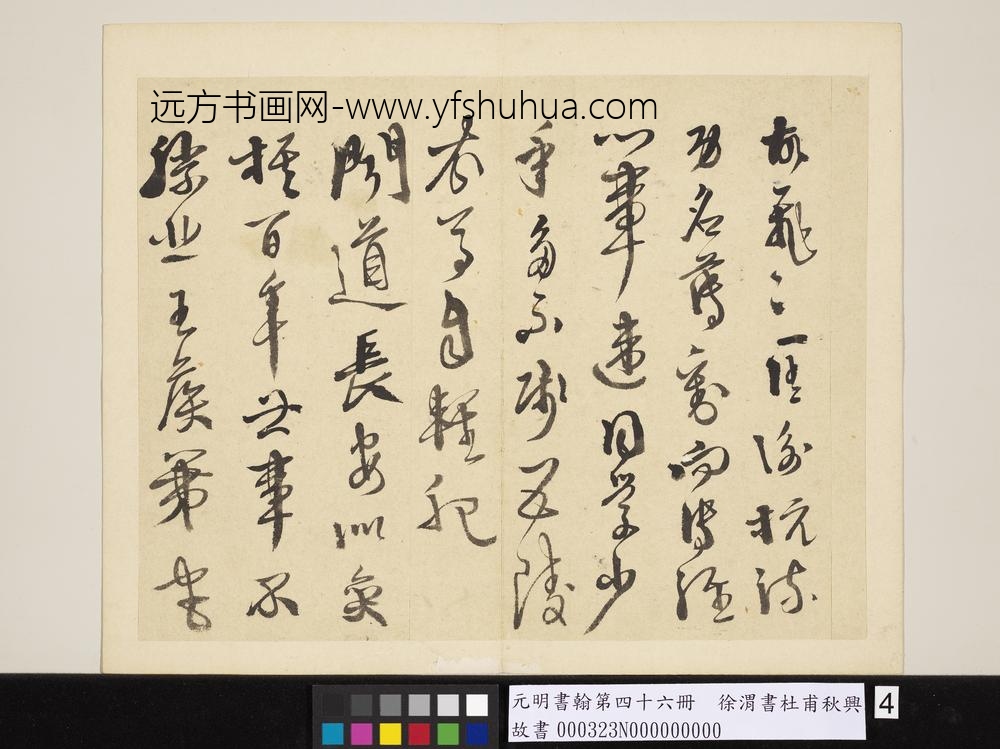 远方书画网-www.yfshuhua.com
故飛〻匡衡抗疏
功名薄劉向傳經
心事違同學少
年多不賤五陵
衣馬自輕肥
聞道長安似奕
棋百年世事不
勝悲王侯第宅
元明書翰第四十六冊 徐渭書杜甫秋興
故書000323N000000000
4